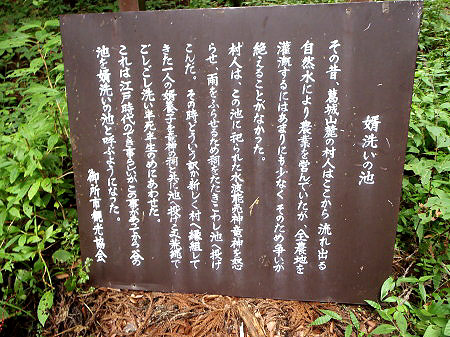 婿洗いの池
その昔、葛城山麓の村人はここから流れ出る
自然水により農業を営んでいたが、全農地を
灌漑するにはあまりにも少なく、そのため争いが
絶えることがなかった。
村人は、この池に祀られた水波能女神竜神を怒
らせ、雨をふらせるため祠をたたきこわし池へ投げ
こんだ。その時どういう訳か新しく村へ縁組して
きた二人の婿養子を神の祠と共に池へ投げこみ荒縄で
ごしごし洗い半死半生のめにあわせた。
これは江戸時代のできごとらしいがこの事があってから谷の
池を婿洗いの池と呼ぶようになった。
御所市観光協会